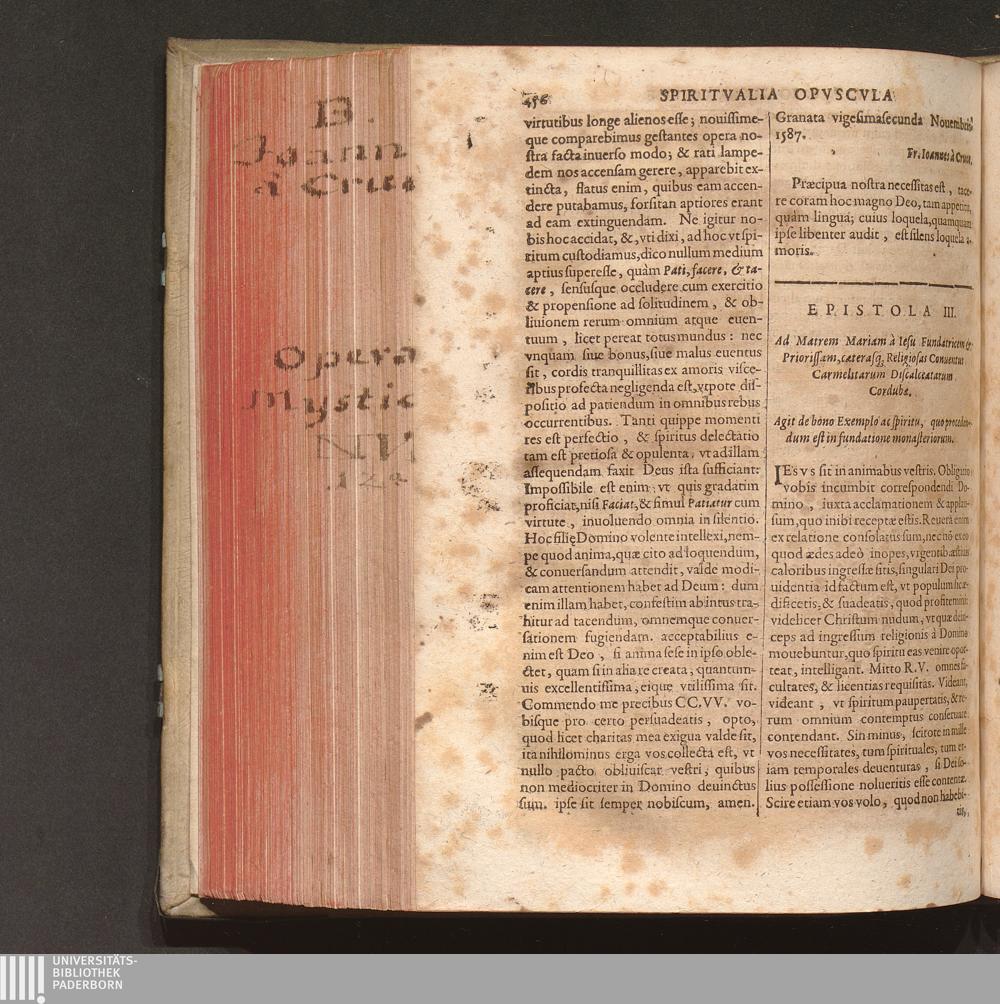 B.
Joann
à Cruc
Opera
Mystic
456
SPIRITVALIA OPVSCVLA
virtutibus longe alienos esse; nouissime-
que comparebimus gestantes opera no-
stra facta inuerso modo; & rati lampe-
dem nos accensam gerere, apparebit ex-
tincta, flatus enim, quibus eam accen-
dere putabamus, forsitan aptiores erant
ad eam extinguendam. Ne igitur no-
bis hoc accidat, &, vti dixi, ad hoc vt spi-
ritum custodiamus, dico nullum medium
aptius superesse, quàm Pati, facere, & ta-
cere, sensusque occludere cum exercitio
& propensione ad solitudinem, & ob-
liuionem rerum omnium atque euen-
tuum, licet pereat totus mundus: nec
vnquam siue bonus, siue malus euentus
sit, cordis tranquillitas ex amoris visce-
ribus profecta negligenda est, vtpote dis-
positio ad patiendum in omnibus rebus
occurrentibus. Tanti quippe momenti
res est perfectio, & spiritus delectatio
tam est pretiosa & opulenta, vt ad illam
assequendam faxit Deus ista sufficiant:
Impossibile est enim, vt quis gradatim
proficiat, nisi Faciat, & simul Patiatur cum
virtute, inuoluendo omnia in silentio.
Hoc filię Domino volente intellexi, nem-
pe quod anima, quæ cito ad loquendum,
& conuersandum attendit, valde modi-
cam attentionem habet ad Deum: dum
enim illam habet, confestim ab intus tra-
hitur ad tacendum, omnemque conuer-
sationem fugiendam. acceptabilius e-
nim est Deo, si anima sese in ipso oble-
ctet, quam si in alia re creata, quantum-
uis excellentissima, eique vtilissima sit.
Commendo me precibus CC.VV. vo-
bisque pro certo persuadeatis, opto,
quod licet charitas mea exigua valde sit,
ita nihilominus erga vos collecta est, vt
nullo pacto obliuiscar vestri, quibus
non mediocriter in Domino deuinctus
sum. ipse sit semper nobiscum, amen.
Granata vigesimasecunda Nouembris
1587.
Fr. Ioannes à Cruce.
Præcipua nostra necessitas est, tace-
re coram hoc magno Deo, tam appetitu,
quàm lingua; cuius loquela, quamquam
ipse libenter audit, est silens loquela a-
moris.
EPISTOLA III.
Ad Matrem Mariam à Iesu Fundatricem &
Priorissam, cæterasq; Religiosas Conuentus
Carmelitarum Discalceatarum
Cordubæ.
Agit de bono Exemplo ac spiritu, quo proceden-
dum est in fundatione monasteriorum.
IESVS sit in animabus vestris. Obligatio
vobis incumbit correspondendi Do-
mino, iuxta acclamationem & applau-
sum, quo inibi receptæ estis. Reuerà enim
ex relatione consolatus sum, nec nō ex eo
quod ædes adeò inopes, vrgentib. æstiuis
caloribus ingressæ sitis, singulari Dei pro-
uidentia id factum est, vt populum hic æ-
dificetis, & suadeatis, quod profitemini:
videlicet Christum nudum, vt quæ dein-
ceps ad ingressum religionis à Domino
mouebuntur, quo spiritu eas venire opor-
teat, intelligant. Mitto R.V. omnes fa-
cultates, & licentias requisitas. Videant,
videant, vt spiritum paupertatis, & re-
rum omnium contemptus conseruare
contendant. Sin minus, scitote in mille
vos necessitates, tum spirituales, tum et-
iam temporales deuenturas, si Dei so-
lius possessione nolueritis esse contentæ.
Scire etiam vos volo, quod non habebi-
tis,
UNIVERSITÄTS-
BIBLIOTHEK
PADERBORN